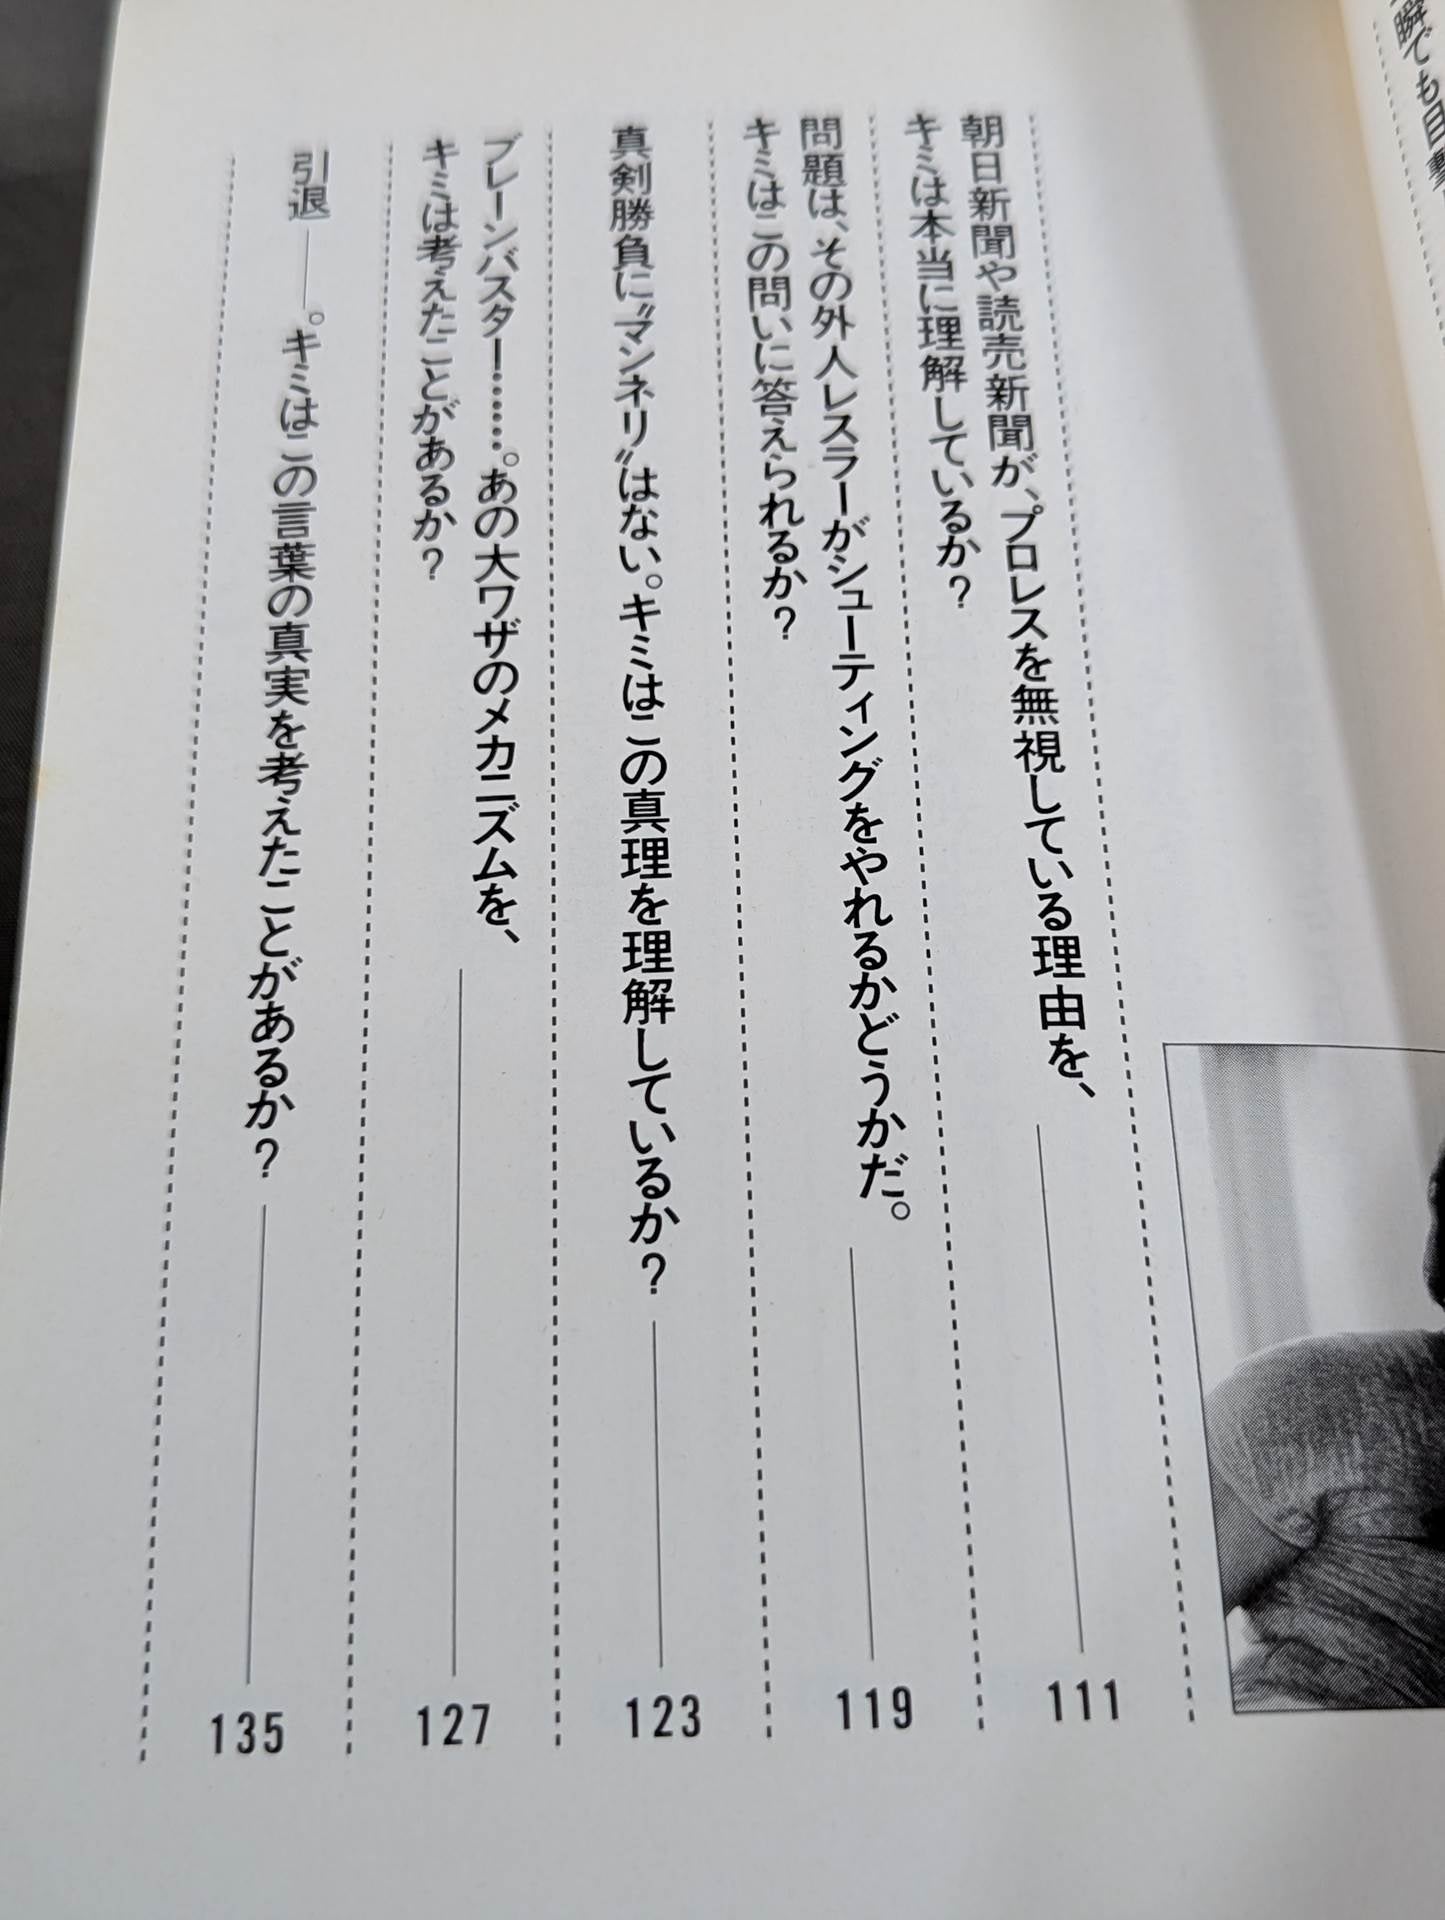 瞬でも目撃
朝日新聞や読売新聞が、プロレスを無視している理由を、
キミは本当に理解しているか？
111
問題は、その外人レスラーがシューティングをやれるかどうかだ。
キミはこの問いに答えられるか？
119
真剣勝負に〝マンネリ〟はない。キミはこの真理を理解しているか？
123
ブレーンバスター……。あの大ワザのメカニズムを、
キミは考えたことがあるか？
127
引退——。キミはこの言葉の真実を考えたことがあるか？
135